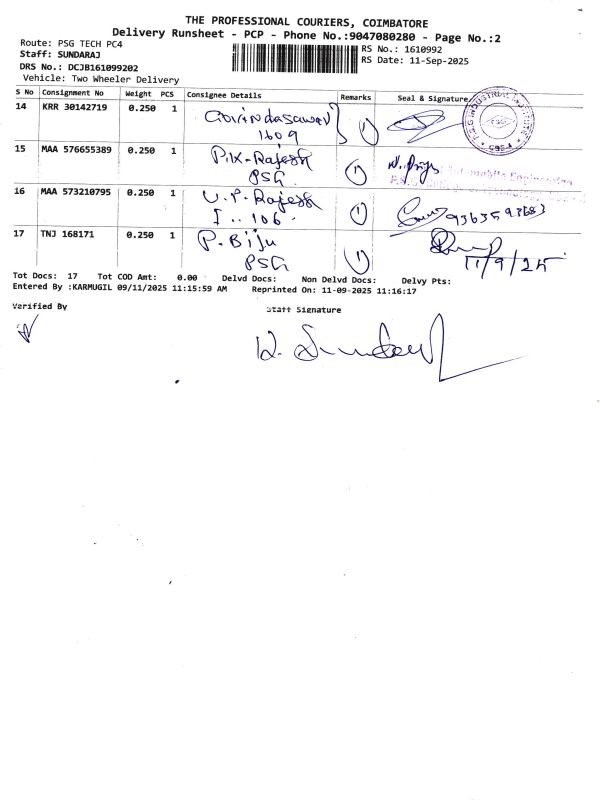 THE PROFESSIONAL COURIERS, COIMBATORE
Delivery Runsheet - PCP - Phone No.:9047080280 - Page No.:2
Route: PSG TECH PC4
RS No.: 1610992
Staff: SUNDARAJ
RS Date: 11-Sep-2025
DRS No.: DCJB161099202
Vehicle: Two Wheeler Delivery
S No Consignment No Weight PCS Consignee Details Remarks Seal & Signature
14 KRR 30142719 0.250 1 Govindasawmy 1
1609
P.S.G INDUSTRIAL INSTITUTE
15 MAA 576655389 0.250 1 P.V.-Rajesh 1
PSG Automobile Engineering
16 MAA 573210795 0.250 1 V.P. Rajesh 1 9363593683
I .. 106.
17 TNJ 168171 0.250 1 P. Biju 1
PSG 11/9/25
Tot Docs: 17 Tot COD Amt: 0.00 Delvd Docs: Non Delvd Docs: Delvy Pts:
Entered By :KARMUGIL 09/11/2025 11:15:59 AM Reprinted On: 11-09-2025 11:16:17
Verified By
Staff Signature